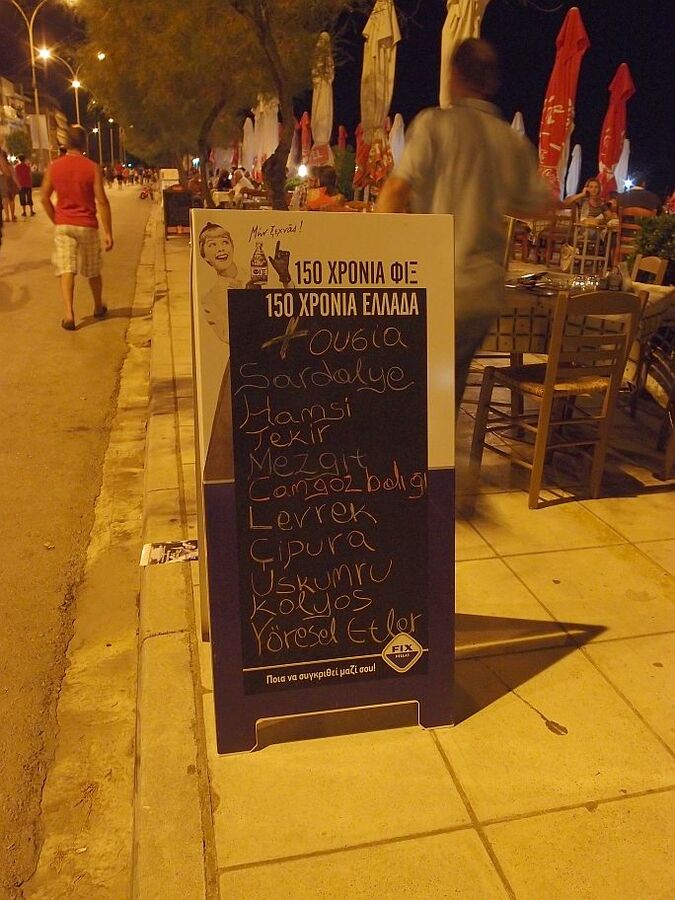 Μήν ξεχνᾶς!
150 ΧΡΟΝΙΑ ΦΙΞ
150 ΧΡΟΝΙΑ ΕΛΛΑΔΑ
+ ουσία
Sardalye
Hamsi
Tekir
Mezgit
Camgöz balığı
Levrek
Çipura
Uskumru
Kolyos
Yöresel Etler
FIX
HELLAS
Ποια να συγκριθεί μαζί σου!